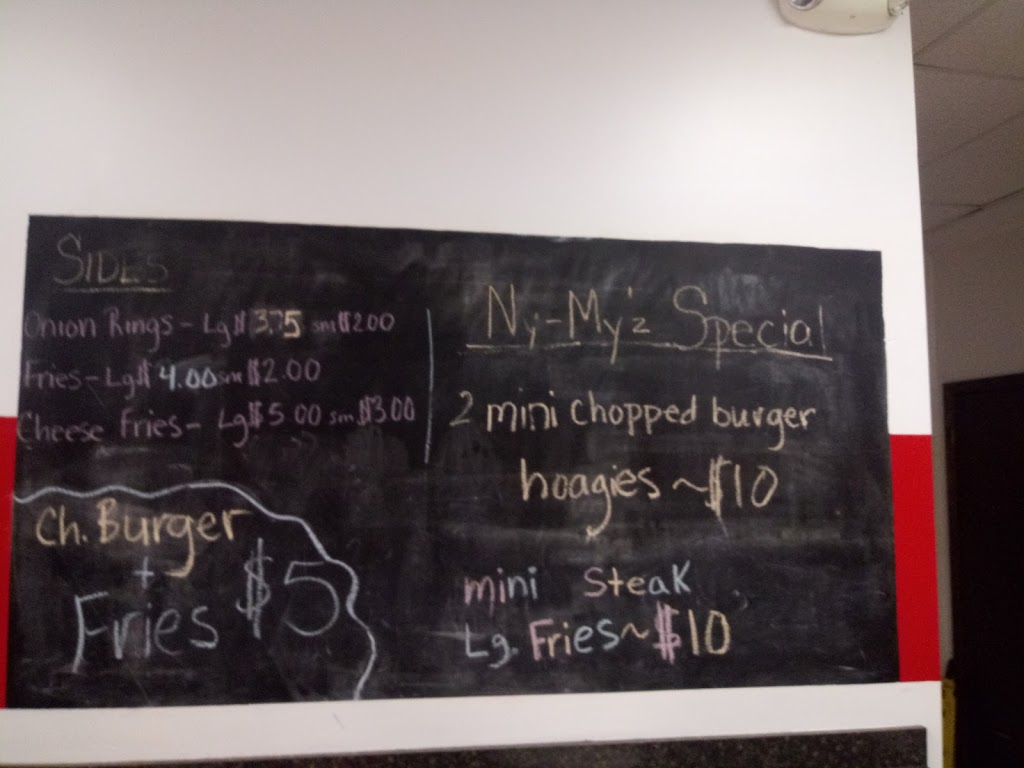 SIDES
Onion Rings - Lg $ 3.75 sm $ 2.00
Fries - Lg $ 4.00 sm $2.00
Cheese Fries - Lg $ 5.00 sm $3.00
Ch. Burger
+
Fries $5
Ny-My'z Special
2 mini chopped burger
hoagies ~ $10
mini Steak
Lg. Fries ~ $10